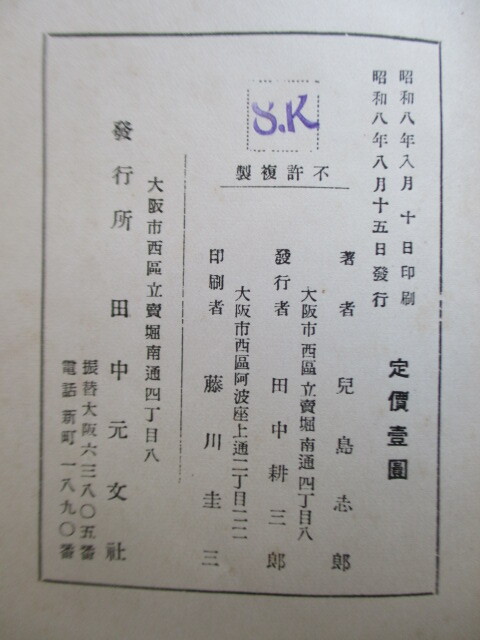 昭和八年八月十日印刷
昭和八年八月十五日發行
定價壹圓
S.K
不許複製
著者 兒島志郎
大阪市西區立賣堀南通四丁目八
發行者 田中耕三郎
大阪市西區阿波座上通二丁目二二
印刷者 藤川圭三
大阪市西區立賣堀南通四丁目八
發行所 田中元文社
振替大阪六三八〇五番
電話新町一八九〇番